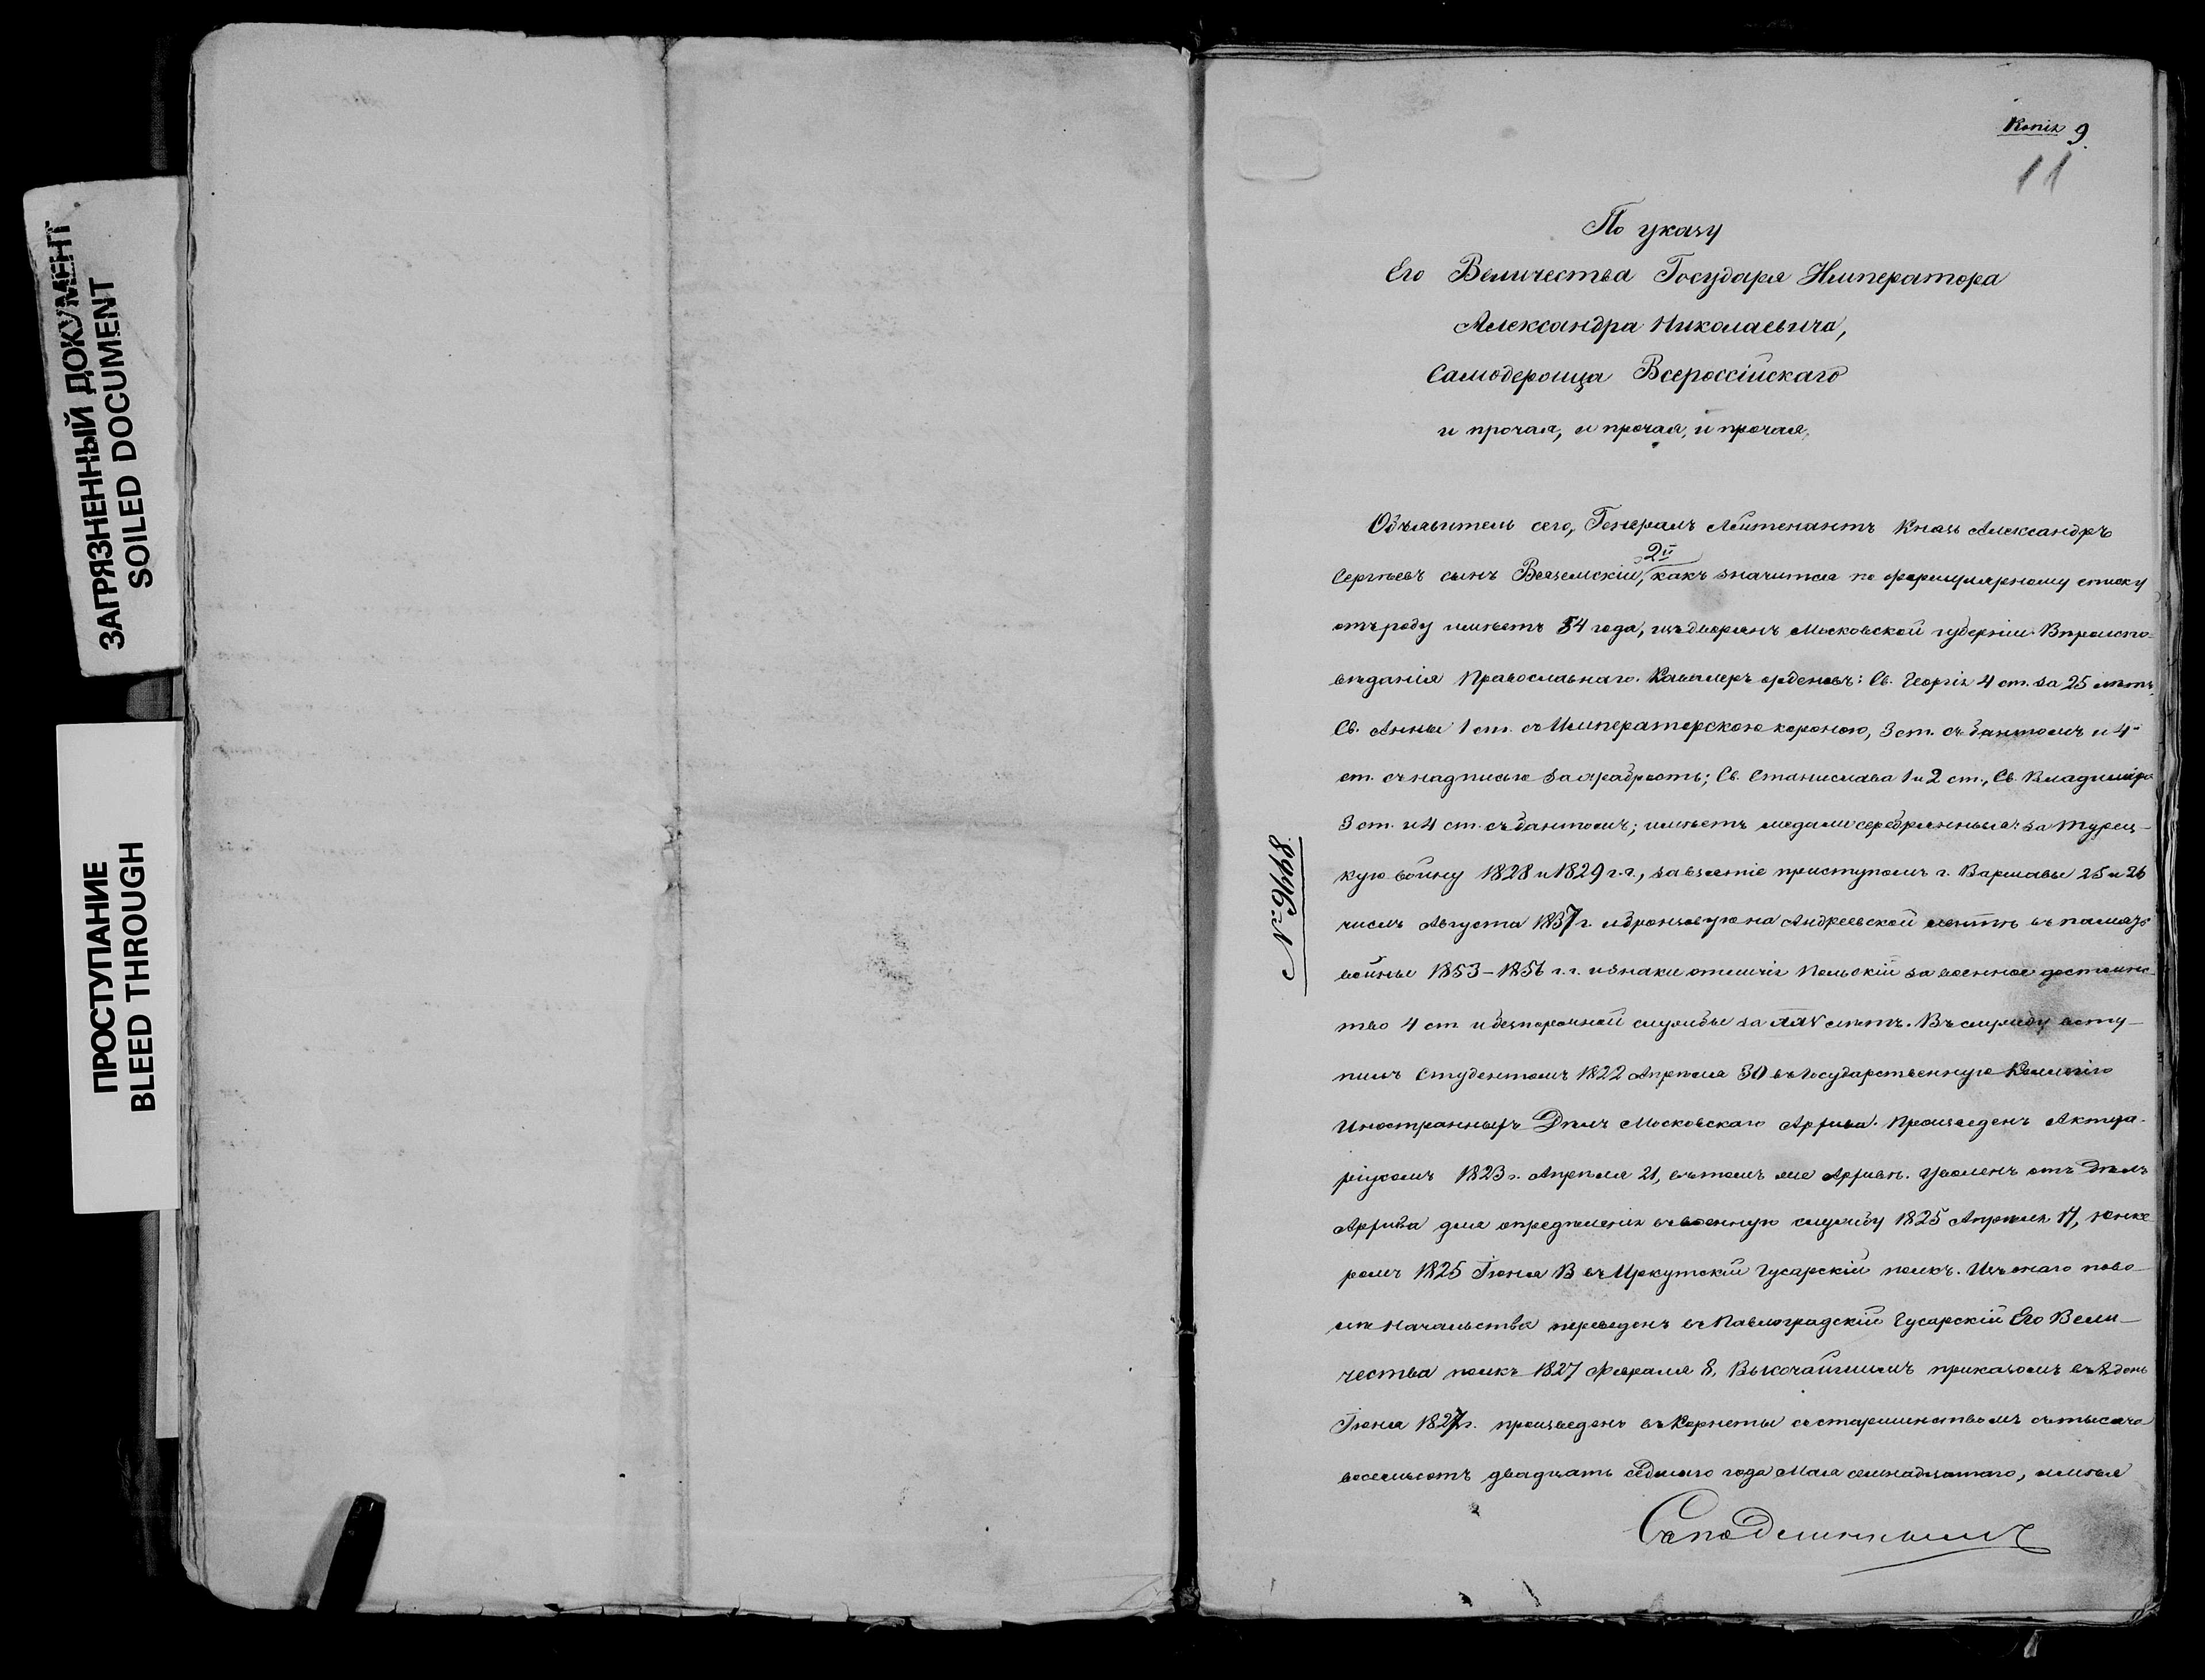 ЗАГРЯЗНЕННЫЙ ДОКУМЕНТ
SOILED DOCUMENT
ПРОСТУПАНИЕ
BLEED THROUGH
Копія 9.
11
По указу
Его Величества Государя Императора
Александра Николаевича,
Самодержца Всероссійскаго
и прочая, и прочая, и прочая,
№ 9448
Объявитель сего, Генералъ Лейтенантъ Князь Александръ
Сергѣевъ сынъ Вяземскій 2й, какъ значится по формулярному списку
отъ роду имѣетъ 54 года, изъ дворянъ Московской губерніи. Вѣроиспо-
вѣданія Православнаго. Кавалеръ орденовъ: Св. Георгія 4 ст. за 25 лѣтъ,
Св. Анны 1 ст. съ Императорскою короною, 3 ст. съ бантомъ и 4
ст. съ надписью за храбрость; Св. Станислава 1 и 2 ст., Св. Владиміра
3 ст. и 4 ст. съ бантомъ; имѣетъ медали серебрянныя: за Турец-
кую войну 1828 и 1829 г.г., за взятіе приступомъ г. Варшавы 25 и 26
числъ Августа 1837 г. и бронзовую на Андреевской лентѣ въ память
войны 1853-1856 г.г. и знаки отличія Польскій за военное достоинс-
тво 4 ст. и безпорочной службы за XXV лѣтъ. Въ службу всту-
пилъ Студентомъ 1822 Апрѣля 30 въ Государственную Коллегію
Иностранныхъ Дѣлъ Московскаго Архива. Произведенъ Актуа-
ріусомъ 1823 г. Апрѣля 21, въ томъ же Архивѣ. Уволенъ отъ Дѣлъ
Архива для опредѣленія въ военную службу 1825 Апрѣля 17, юнке
ромъ 1825 Іюня 13 въ Иркутскій Гусарскій полкъ. Изъ онаго по во-
лѣ Начальства переведенъ въ Павлоградскій Гусарскій Его Вели-
чества полкъ 1827 Февраля 8, Высочайшимъ приказомъ въ 8 день
Іюня 1827 г. произведенъ въ Корнеты со старшинствомъ съ тысяча
восемьсотъ двадцать седьмого года Мая семнадцатаго, имѣя
Съ подлиннымъ